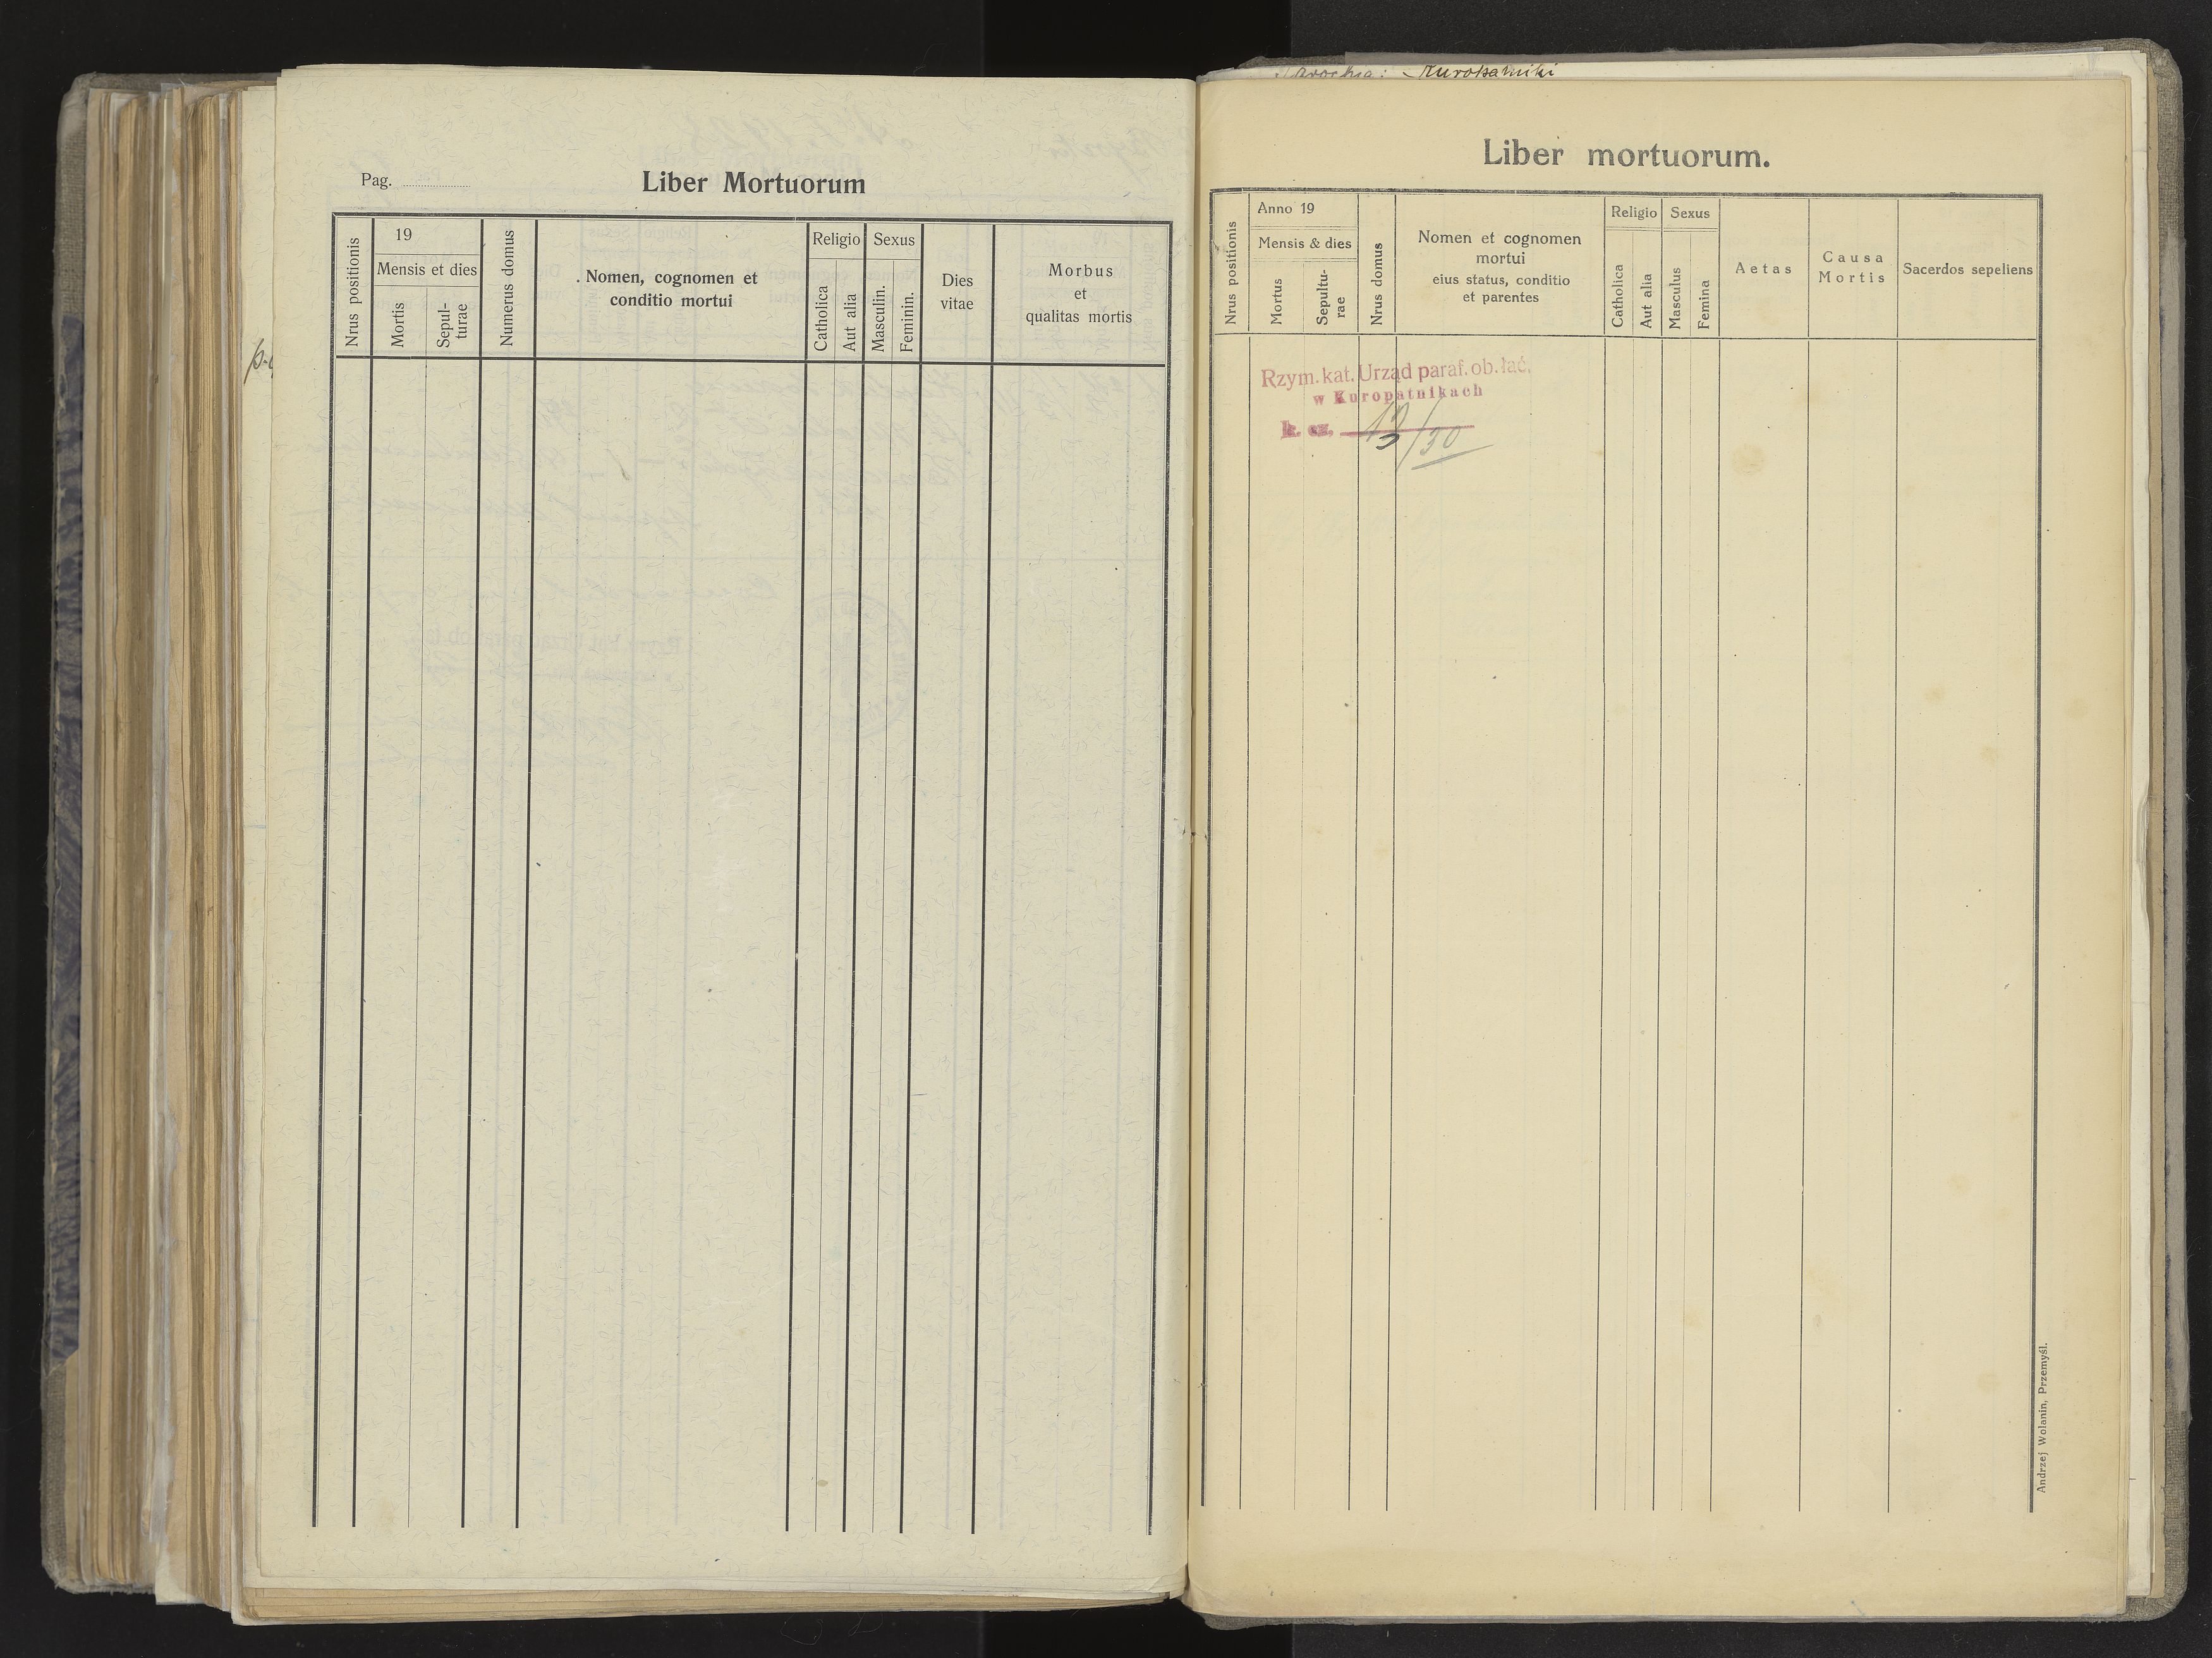 Pag.
Liber Mortuorum
Nrus positionis
19
Mensis et dies
Mortis
Sepul-
turae
Numerus domus
Nomen, cognomen et
conditio mortui
Religio
Catholica
Aut alia
Sexus
Masculin.
Feminin.
Dies
vitae
Morbus
et
qualitas mortis
Liber mortuorum.
Nrus positionis
Anno 19
Mensis & dies
Mortus
Sepultu-
rae
Nrus domus
Nomen et cognomen
mortui
eius status, conditio
et parentes
Religio
Catholica
Aut alia
Sexus
Masculus
Femina
Aetas
Causa
Mortis
Sacerdos sepeliens
Rzym. kat. Urząd paraf. ob. łać.
w Kuropatnikach
Andrzej Wolanin, Przemyśl.